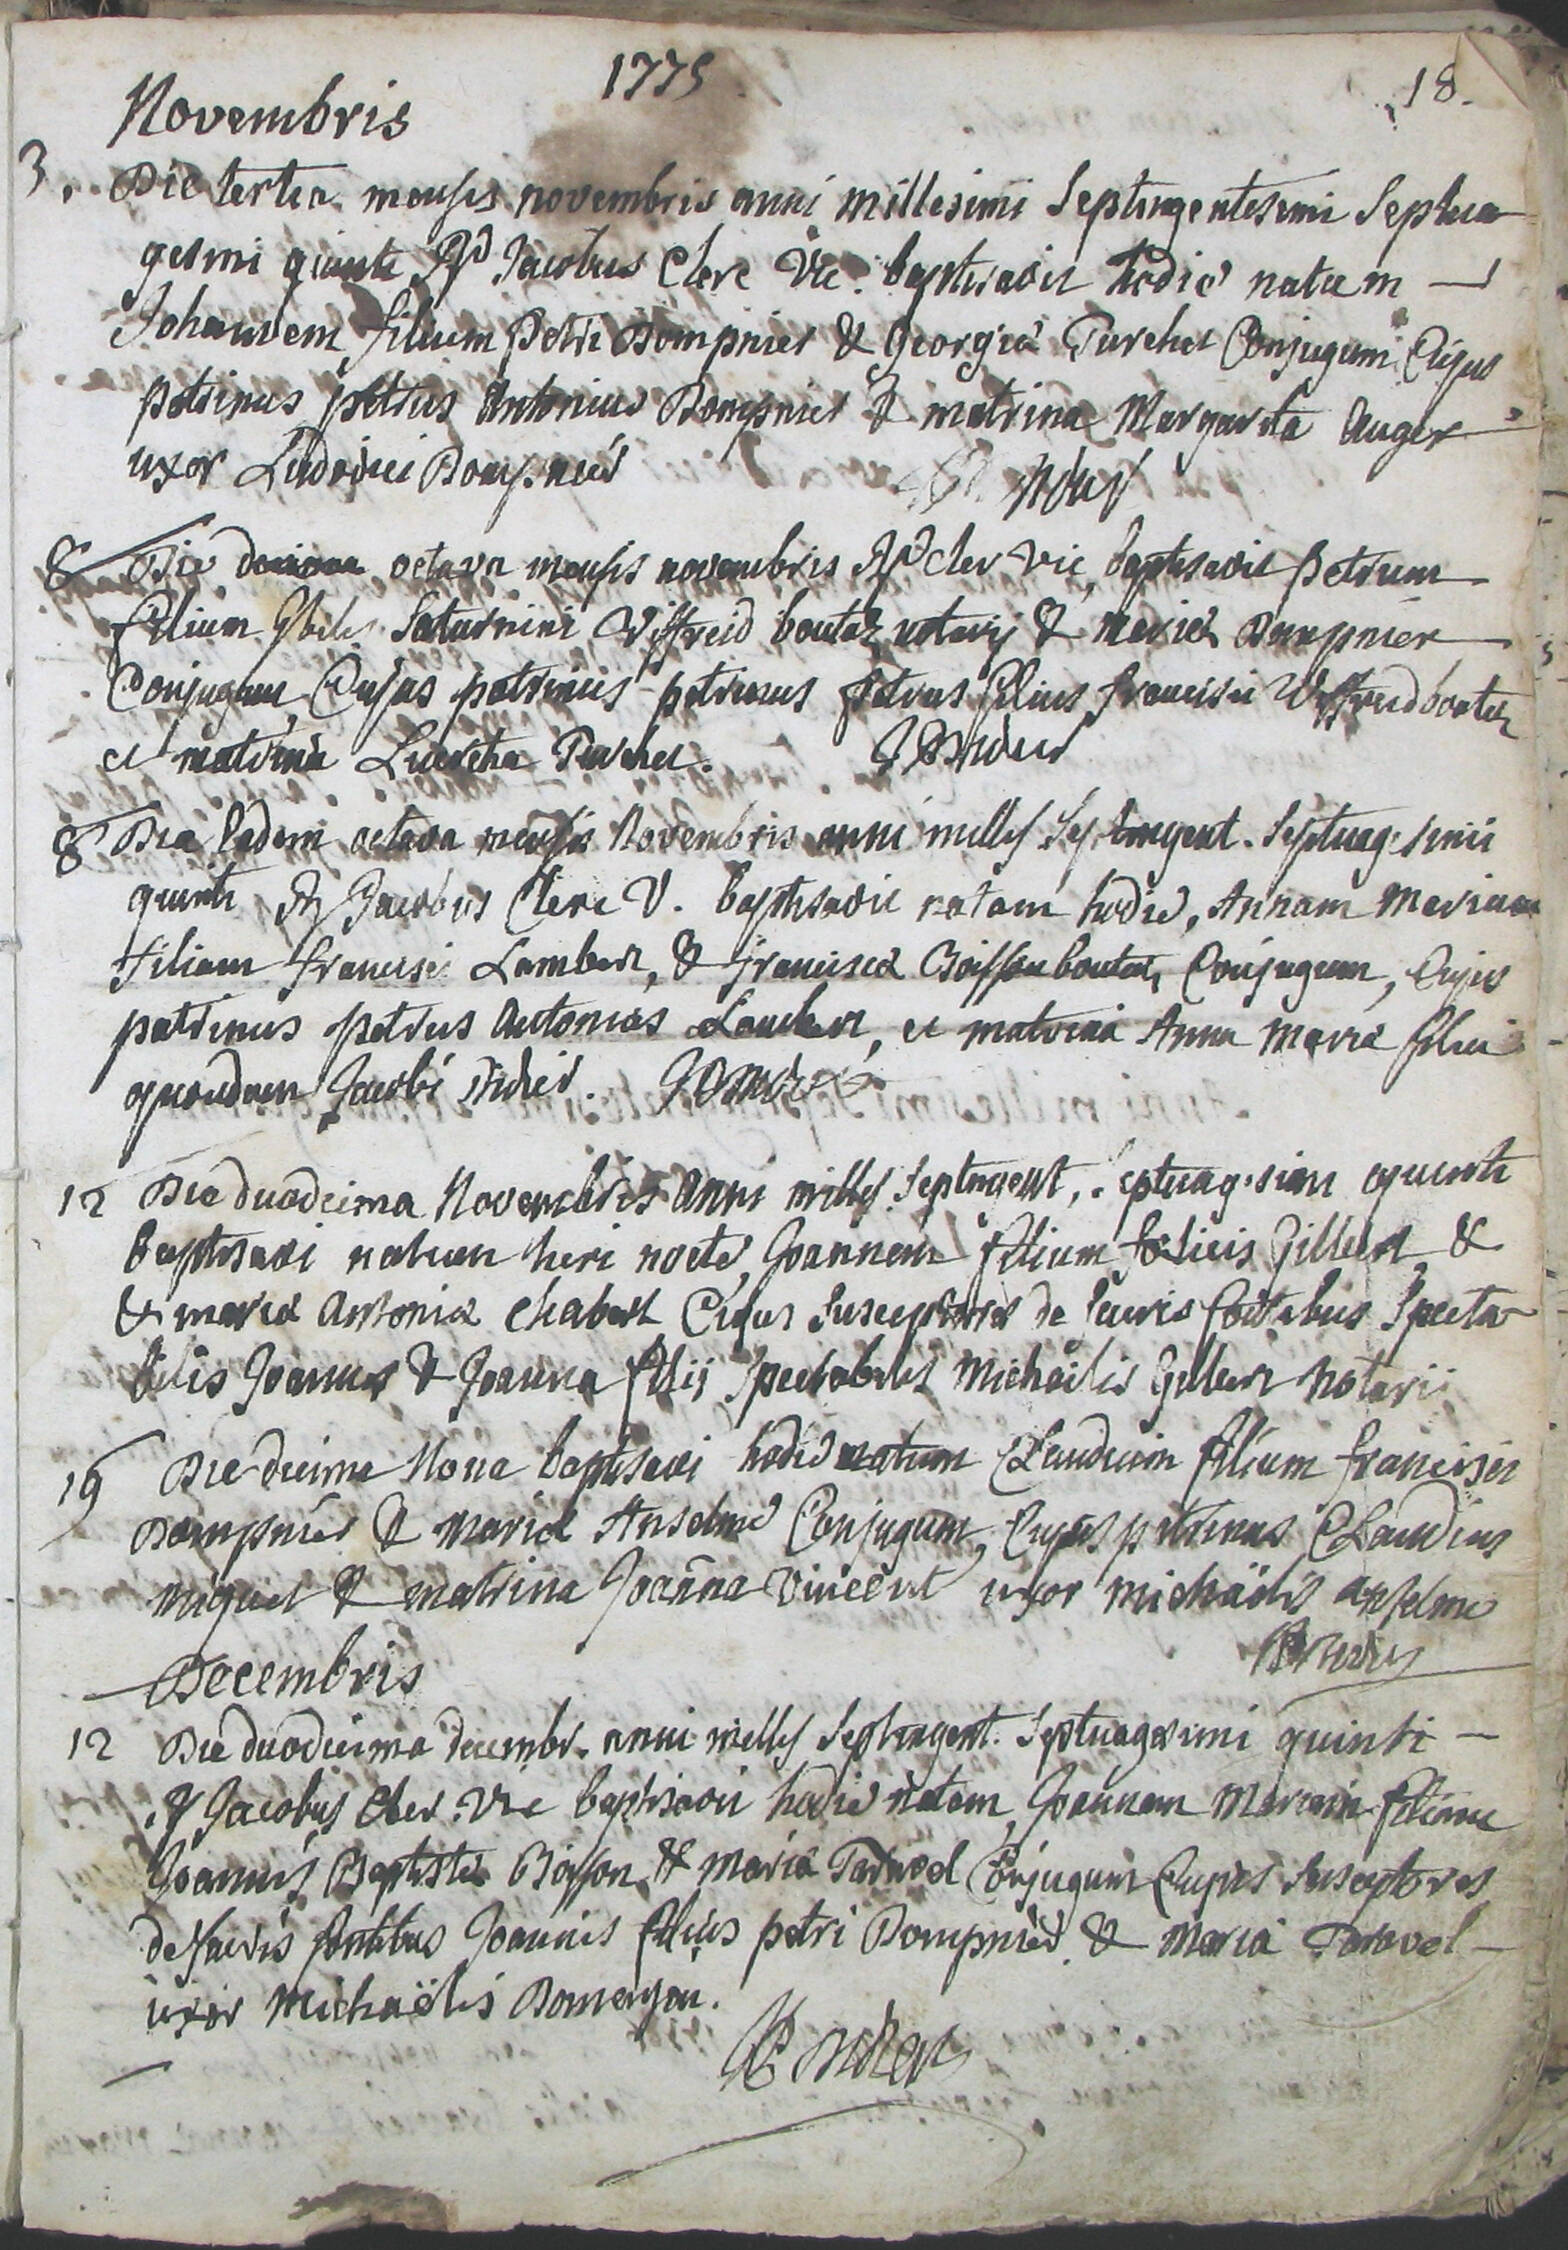 1775
18.
Novembris
3. Die tertia mensis novembris anni millesimi Septingentesimi Septua
gesmi quinti Rd Jacobus Clerc Vic. baptisavit hodie natum —
Johannem filium Petri Dompnier & Georgiæ Turchet Conjugum Cujus
patrinus petrus Antonius Dompnier & matrina Margarita Auger
uxor Ludovici Dompnier
8 Die octava mensis novembris Rd cler vic baptisavit petrum
filium Saturnini Viffreid boutaz notarij & mariæ Dompnier
Conjugum, Cujus patrinus patrinus petrus filius francisci Viffreid boutaz
et matrina Lucretia Turchet.
8 Die Eadem octava mensis Novembris anni milles Septingent. Septuagesimi
quinti R Jacobus Clerc V. baptisavit natam hodie, Annam Mariam
filiam francisci Lambert, & franciscæ Boisson boutaz, Conjugum, Cujus
patrinus petrus Antonius Lambert, et matrina Anna Maria filia
quondam Jacobi
12 Die duodecima Novembris Anni milles. Septingent, Septuagesimi quinti
baptisavi natum heri nocte, Joannem filium felicis Gilbert &
& mariæ Antoniæ Chabert Cujus Susceptores de Sacris fontibus Specta
bilis Joannes & Joanna filij Spectabilis Michaelis Gilbert Notarii
19 Die decima Nona baptisavi hodie natum Claudium filium francisci
Dompnier & Mariæ Anselme Conjugum, Cujus patrinus Claudius
miquet & matrina Joanna Vincent uxor Michaëlis anselme
Decembris
12 Die duodecima decembr. anni milles Septingent. Septuagesimi quinti —
R Jacobus Cler. Vic baptisavit hodie natam, Joannam Mariam filiam
Joannis Baptistæ Boisson & Mariæ Taravel Conjugum Cujus Susceptores
de Sacris fontibus Joannes filius petri Dompnier & Maria Taravel —
uxor Michaëlis